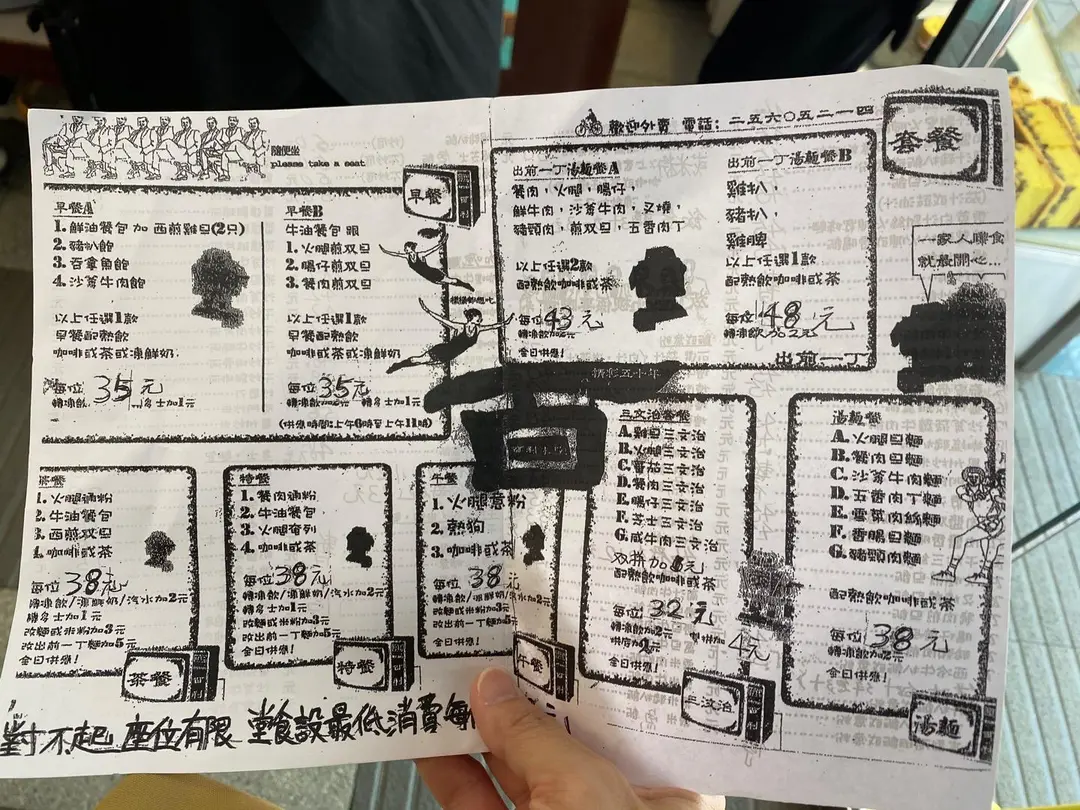 隨便坐
please take a seat
歡迎外賣 電話：二五六○五二一四
套餐
早餐
早餐A
1. 鮮油餐包 加 西煎雞旦(2只)
2. 豬扒飽
3. 吞拿魚飽
4. 沙爹牛肉飽
以上任選1款
早餐配熱飲
咖啡或茶或凍鮮奶.
每位 35元
早餐B
牛油餐包 跟
1. 火腿煎双旦
2. 腸仔煎双旦
3. 餐肉煎双旦
以上任選1款
早餐配熱飲
咖啡或茶或凍鮮奶
每位 35元
轉多士加1元
(供應時間:上午6時至上午11時)
出前一丁湯麵餐A
餐肉，火腿，腸仔，
鮮牛肉，沙爹牛肉，叉燒，
豬頸肉，煎双旦，五香肉丁
以上任選2款
配熱飲咖啡或茶
每位 43元
轉凍飲加2元
全日供應!
出前一丁湯麵餐B
雞扒，
豬扒，
雞脾
以上任選1款
配熱飲咖啡或茶
每位 48元
出前一丁
一家人嚟食
就最開心...
精彩五十年
茶餐
1. 火腿通粉
2. 牛油餐包
3. 西煎双旦
4. 咖啡或茶
每位 38元
轉凍飲/凍鮮奶/汽水加2元
轉多士加1元
改麵或米粉加3元
改出前一丁麵加5元
全日供應!
茶餐
特餐
1. 餐肉通粉
2. 牛油餐包
3. 火腿奄列
4. 咖啡或茶
每位 38元
轉凍飲/凍鮮奶/汽水加2元
轉多士加1元
改麵或米粉加3元
改出前一丁麵加5元
全日供應!
特餐
午餐
1. 火腿意粉
2. 熱狗
3. 咖啡或茶
每位 38元
轉凍飲/凍鮮奶/汽水加2元
改麵或米粉加3元
改出前一丁麵加5元
全日供應!
午餐
三文治套餐
A. 雞旦三文治
B. 火腿三文治
C. 番茄三文治
D. 餐肉三文治
E. 腸仔三文治
F. 芝士三文治
G. 咸牛肉三文治
双拼加
配熱飲咖啡或茶
每位 32元
轉凍飲加2元
烘底加2元
4元
全日供應!
三文治
湯麵餐
A. 火腿旦麵
B. 餐肉旦麵
C. 沙爹牛肉麵
D. 五香肉丁麵
E. 雪菜肉絲麵
F. 香腸旦麵
G. 豬頸肉麵
配熱飲咖啡或茶
每位 38元
轉凍飲加2元
全日供應!
湯麵
對不起 座位有限 堂食設最低消費每